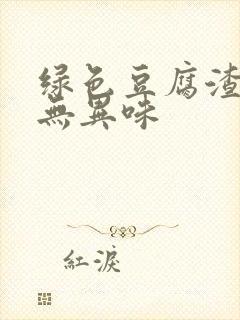 绿色豆腐渣
無異味
紅淚